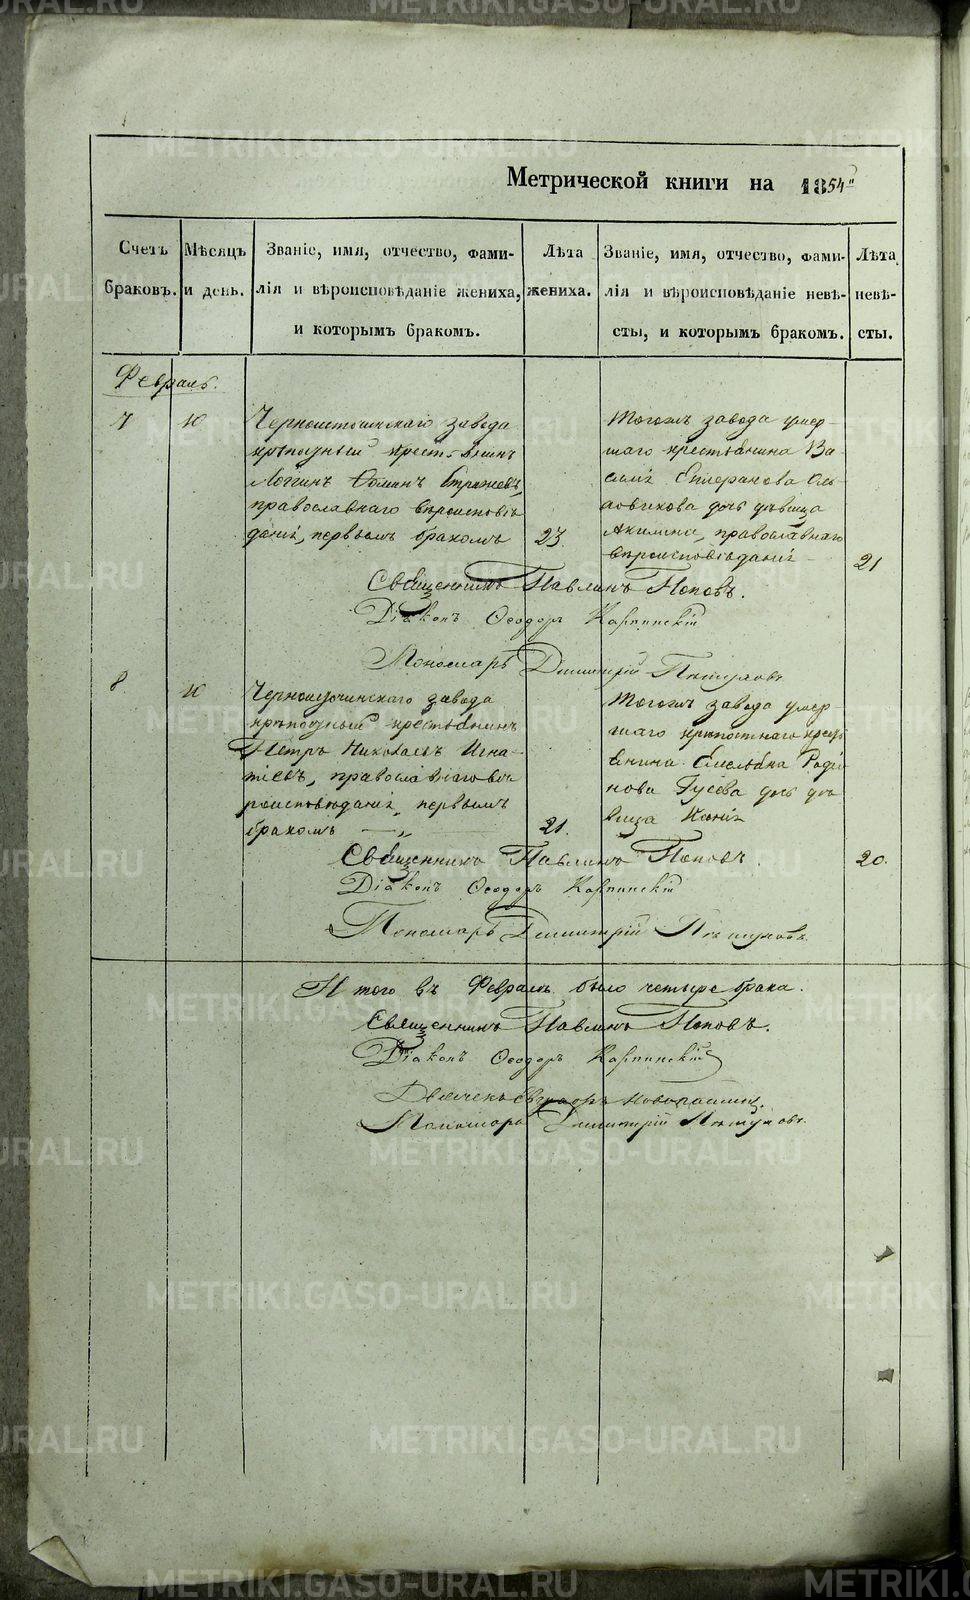 METRIKI.GASO-URAL.RU
Метрической книги на 1854й
Счетъ браковъ.
Мѣсяцъ и день.
Званіе, имя, отчество, фами-
лія и вѣроисповѣданіе жениха,
и которымъ бракомъ.
Лѣта
жениха.
Званіе, имя, отчество, фами-
лія и вѣроисповѣданіе невѣ-
сты, и которымъ бракомъ.
Лѣта
невѣ-
сты.
Февраль.
7
10
Черноисточинскаго завода
крѣпостный крестьянинъ
Логгинъ Ѳоминъ
православнаго вѣроисповѣ
данія, первымъ бракомъ
23.
Тогожъ завода умер-
шаго крестьянина Ва-
силія
дочь дѣвица
православнаго
вѣроисповѣданія
21
Священникъ Павлинъ Поповъ.
Діаконъ Ѳеодоръ Карпинскій
Пономарь Димитрій Пѣтуховъ
8
10
Черноисточинскаго завода
крѣпостный крестьянинъ
Петръ Николаевъ Игна-
тіевъ, православнаго вѣ
роисповѣданія, первымъ
бракомъ
21.
Тогожъ завода умер
шаго крѣпостнаго крест
янина Емельяна Родіо
нова Гусева дочь дѣ
вица Ксенія
20.
Священникъ Павлинъ Поповъ.
Діаконъ Ѳеодоръ Карпинскій
Пономарь Димитрій Пѣтуховъ.
Итого въ Февралѣ было четыре брака.
Священникъ Павлинъ Поповъ.
Діаконъ Ѳеодоръ Карпинскій
Дьячекъ
Пономарь Димитрій Пѣтуховъ.